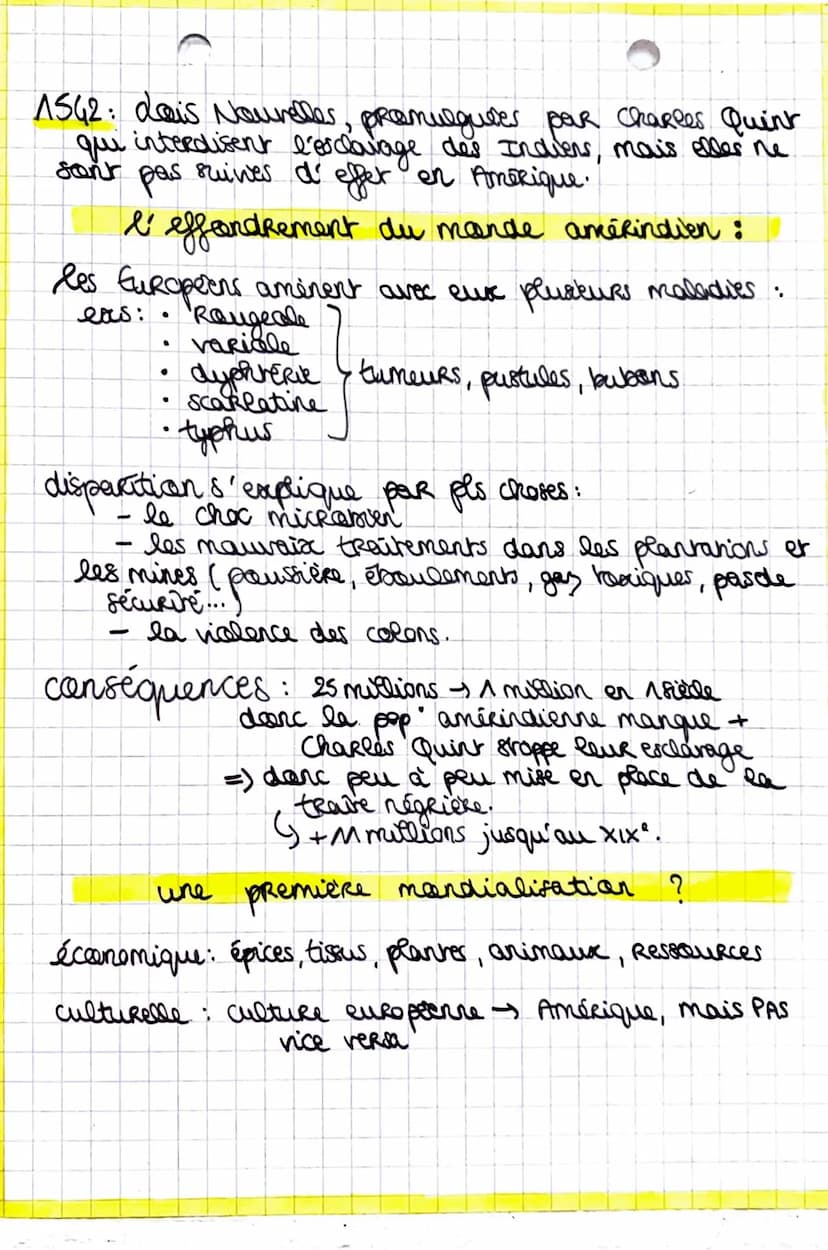 1542 : Lois Nouvelles, promulguées par Charles Quint
qui interdisent l'esclavage des Indiens, mais elles ne
sont pas suivies d'effet en Amérique.
l'effondrement du monde amérindien :
les Européens amènent avec eux plusieurs maladies :
exs : • Rougeole
• variole
• dyphtérie
• scarlatine
• typhus
tumeurs, pustules, bubons
disparition s'explique par pls choses :
- le choc microbien
- les mauvaix traitements dans les plantations et
les mines (poussière, éboulements, gaz toxiques, pas de
sécurité...)
- la violence des colons.
conséquences : 25 millions → 1 million en 1 siècle
donc la pop° amérindienne manque +
Charles Quint stoppe leur esclavage
=> donc peu à peu mise en place de la
traite négrière.
↳ + 11 millions jusqu'au XIXe.
une première mondialisation ?
économique : épices, tissus, plantes, animaux, ressources
culturelle : culture européenne → Amérique, mais PAS
vice versa